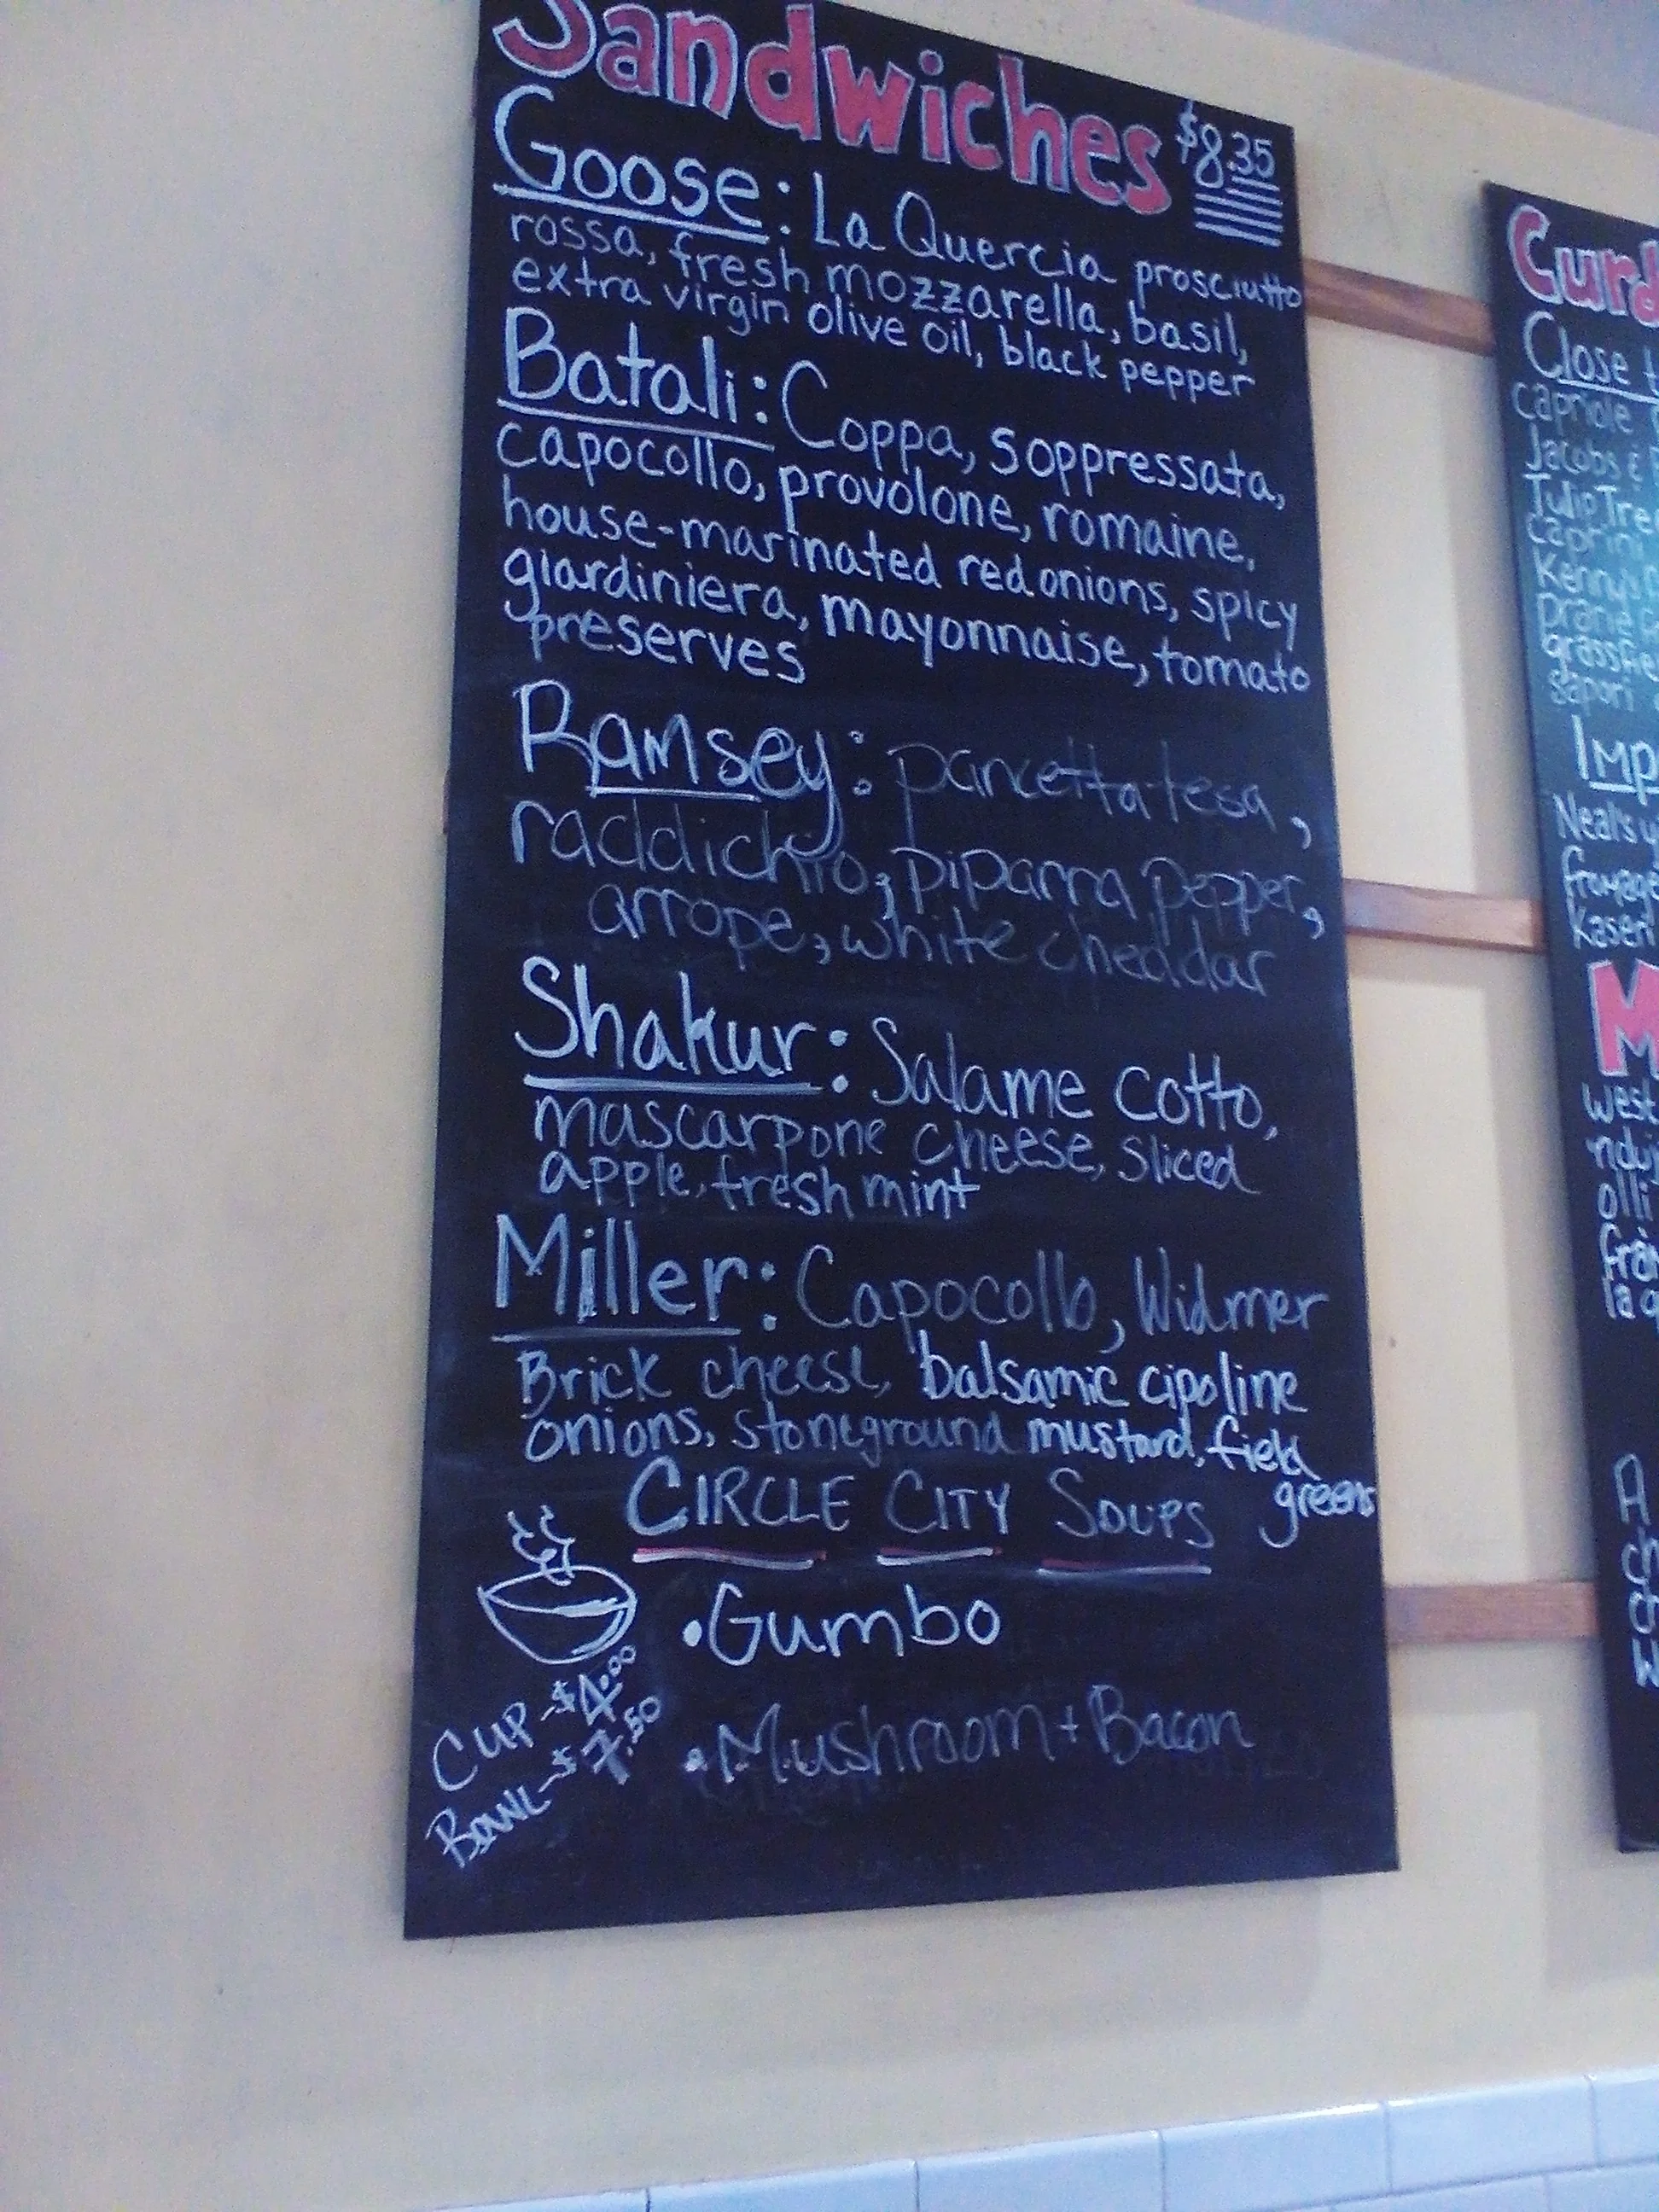 Sandwiches $8.35
Goose: La Quercia prosciutto
rossa, fresh mozzarella, basil,
extra virgin olive oil, black pepper
Batali: Coppa, soppressata,
capocollo, provolone, romaine,
house-marinated red onions, spicy
giardiniera, mayonnaise, tomato
preserves
Ramsey: pancetta tesa,
raddichio, piparra pepper,
arrope, white cheddar
Shakur: Salame cotto,
mascarpone cheese, sliced
apple, fresh mint
Miller: Capocollo, Widmer
Brick cheese, balsamic cipoline
onions, stoneground mustard, field
greens
CIRCLE CITY SOUPS
•Gumbo
•Mushroom + Bacon
CUP-$4.00
BOWL-$7.50
Curd
Close
capriole
Jacobs &
Tulip Tre
caprini
Kenny's
prarie
grassfie
sapori
Imp
Neal's y
fromage
Kaseri
M
west
nduj
olli
fra
la q
A
ch